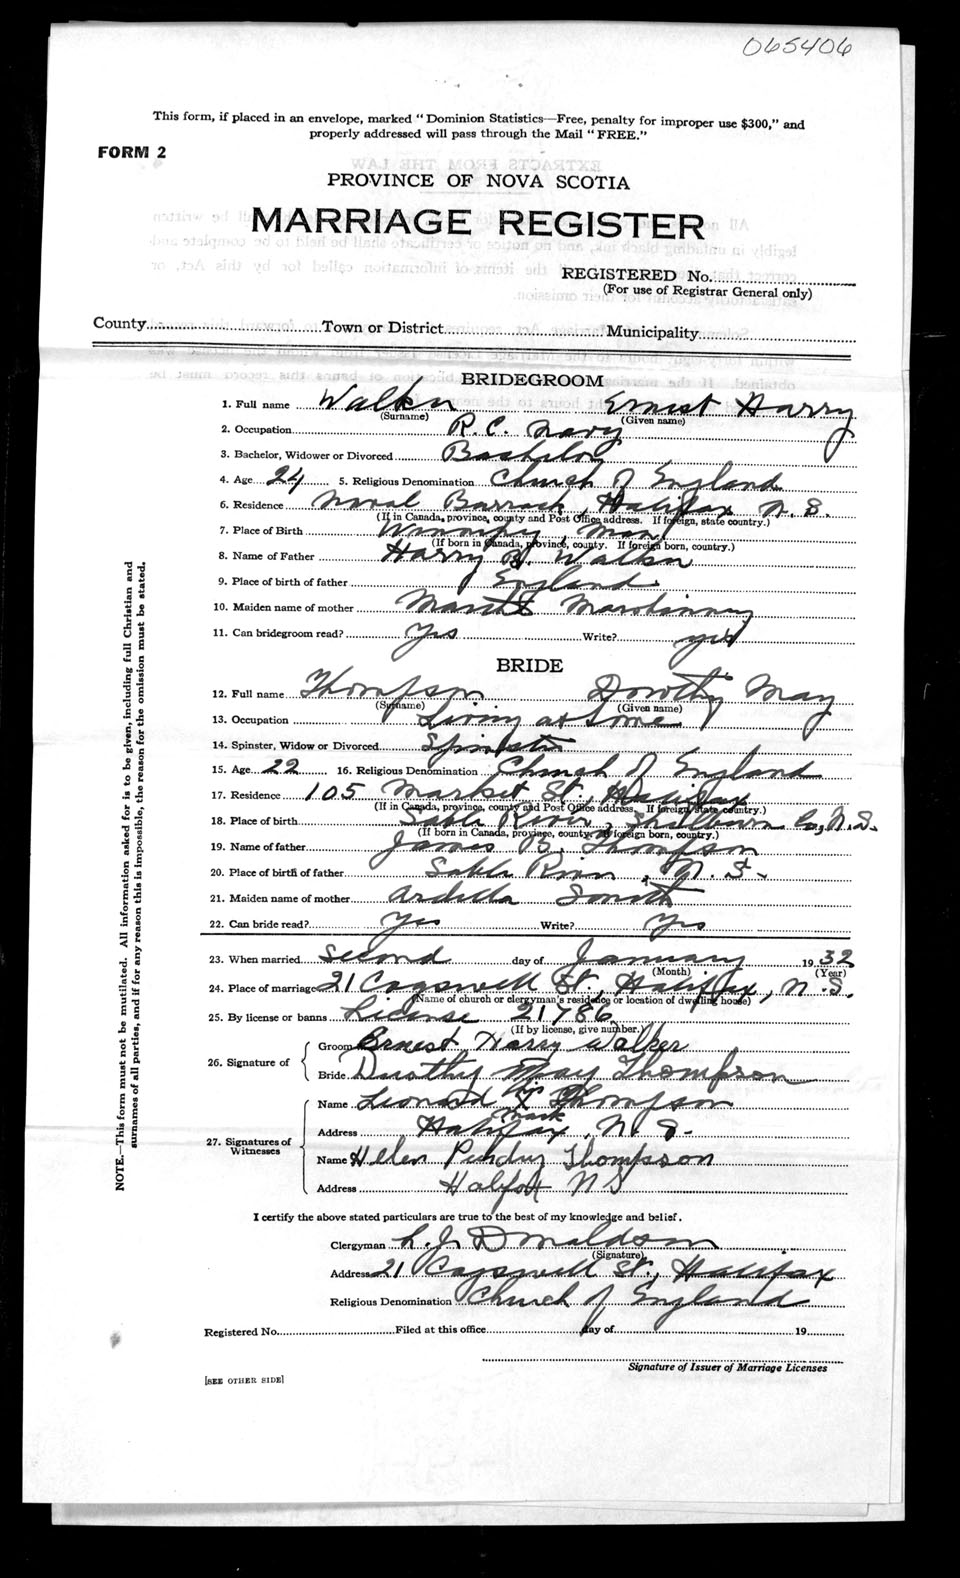 065406
This form, if placed in an envelope, marked "Dominion Statistics—Free, penalty for improper use $300," and
properly addressed will pass through the Mail "FREE."
FORM 2
PROVINCE OF NOVA SCOTIA
MARRIAGE REGISTER
REGISTERED No.
(For use of Registrar General only)
County Town or District Municipality
BRIDEGROOM
1. Full name Walker Ernest Harry
(Surname) (Given name)
2. Occupation R. C. Navy
3. Bachelor, Widower or Divorced Bachelor
4. Age 24 5. Religious Denomination Church of England
6. Residence Naval Barracks, Halifax N. S.
(If in Canada, province, county and Post Office address. If foreign, state country.)
7. Place of Birth Winnipeg, Man.
(If born in Canada, province, county. If foreign born, country.)
8. Name of Father Harry B. Walker
9. Place of birth of father England
10. Maiden name of mother
11. Can bridegroom read? Yes Write? yes
BRIDE
12. Full name Thompson Dorothy May
(Surname) (Given name)
13. Occupation Living at home
14. Spinster, Widow or Divorced Spinster
15. Age 22 16. Religious Denomination Church of England
17. Residence 105 Market St., Halifax
(If in Canada, province, county and Post Office address. If foreign, state country.)
18. Place of birth Sable River, Shelburn Co, N.S.
(If born in Canada, province, county. If foreign born, country.)
19. Name of father James B. Thompson
20. Place of birth of father Sable River, N. S.
21. Maiden name of mother Ardella Smith
22. Can bride read? Yes Write? Yes
23. When married Second day of January 1932
(Month) (Year)
24. Place of marriage 21 Cogswell St., Halifax, N.S.
(Name of church or clergyman's residence or location of dwelling house)
25. By license or banns License 21786
(If by license, give number.)
26. Signature of Groom Ernest Harry Walker
Bride Dorothy May Thompson
his
27. Signatures of Witnesses Name Leonard X Thompson
mark
Address Halifax, N. S.
Name Helen Thompson
Address Halifax N S
I certify the above stated particulars are true to the best of my knowledge and belief.
Clergyman L. J. Donaldson
(Signature)
Address 21 Cogswell St., Halifax
Religious Denomination Church of England
Registered No. Filed at this office day of 19
Signature of Issuer of Marriage Licenses
[SEE OTHER SIDE]
NOTE.—This form must not be mutilated. All information asked for is to be given, including full Christian and
surnames of all parties, and if for any reason this is impossible, the reason for the omission must be stated.